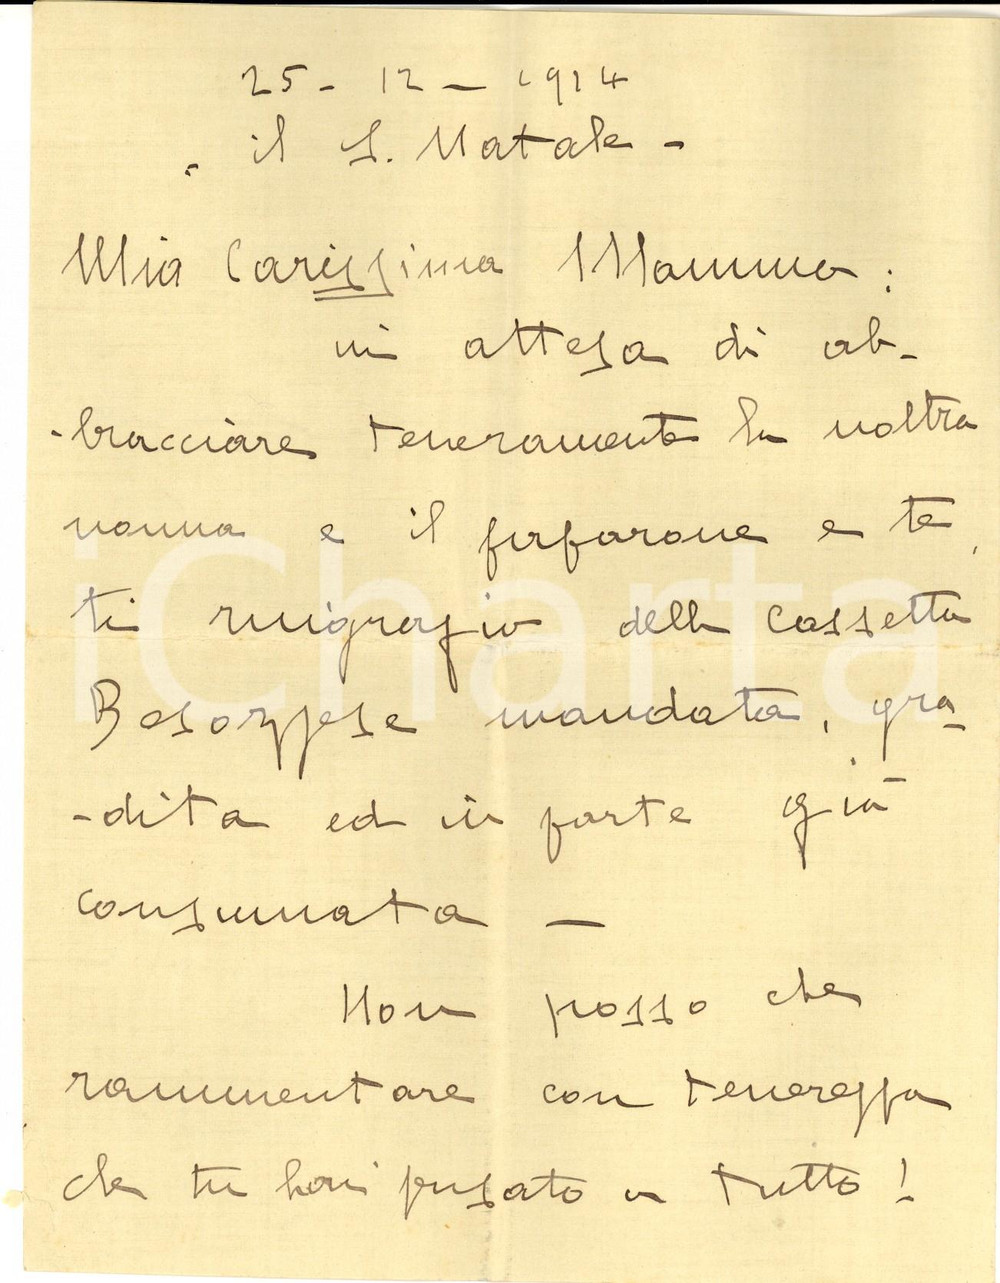 25 - 12 - 1914
- il S. Natale -
Mia Carissima Mamma:
in attesa di ab-
-bracciare teneramente la nostra
nonna e il farfarone e te,
ti ringrazio della Cassetta
Besozzese mandata, gra-
-dita ed in parte già
consumata -
Non posso che
rammentare con tenerezza
che tu hai pensato a tutto!
iCharta